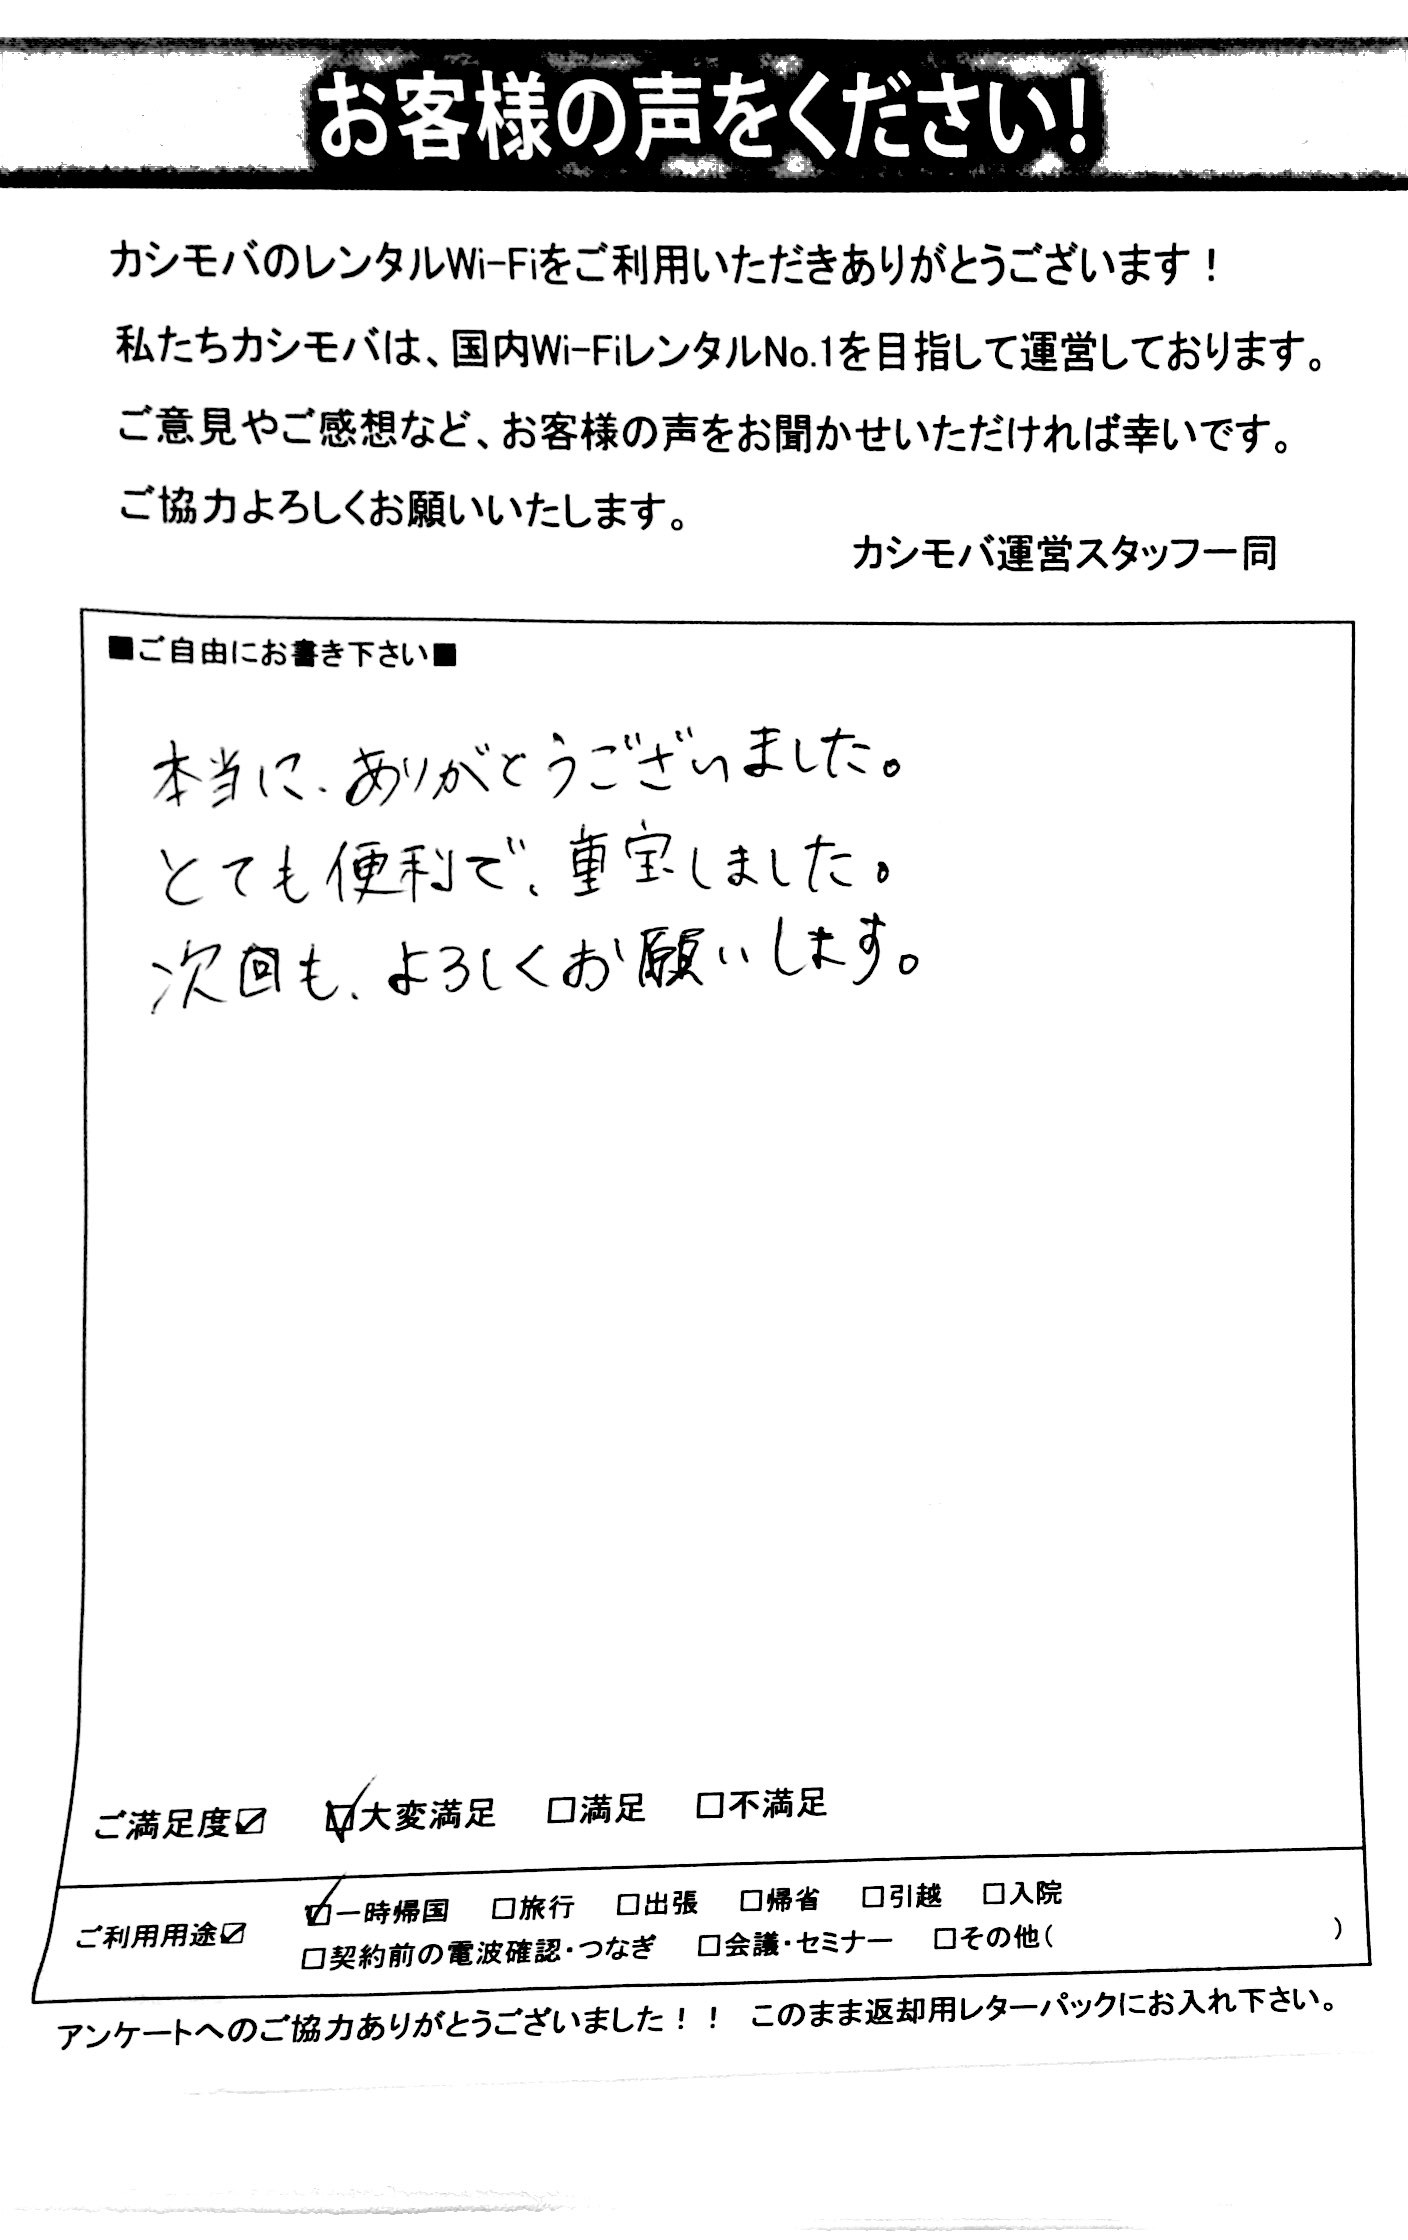 お客様の声をください!
カシモバのレンタルWi-Fiをご利用いただきありがとうございます！
私たちカシモバは、国内Wi-FiレンタルNo.1を目指して運営しております。
ご意見やご感想など、お客様の声をお聞かせいただければ幸いです。
ご協力よろしくお願いいたします。
カシモバ運営スタッフ一同
■ご自由にお書き下さい■
本当に、ありがとうございました。
とても便利で、重宝しました。
次回も、よろしくお願いします。
ご満足度☑ ☑大変満足 □満足 □不満足
ご利用用途☑ ☑一時帰国 □旅行 □出張 □帰省 □引越 □入院
□契約前の電波確認・つなぎ □会議・セミナー □その他( )
アンケートへのご協力ありがとうございました！！ このまま返却用レターパックにお入れ下さい。